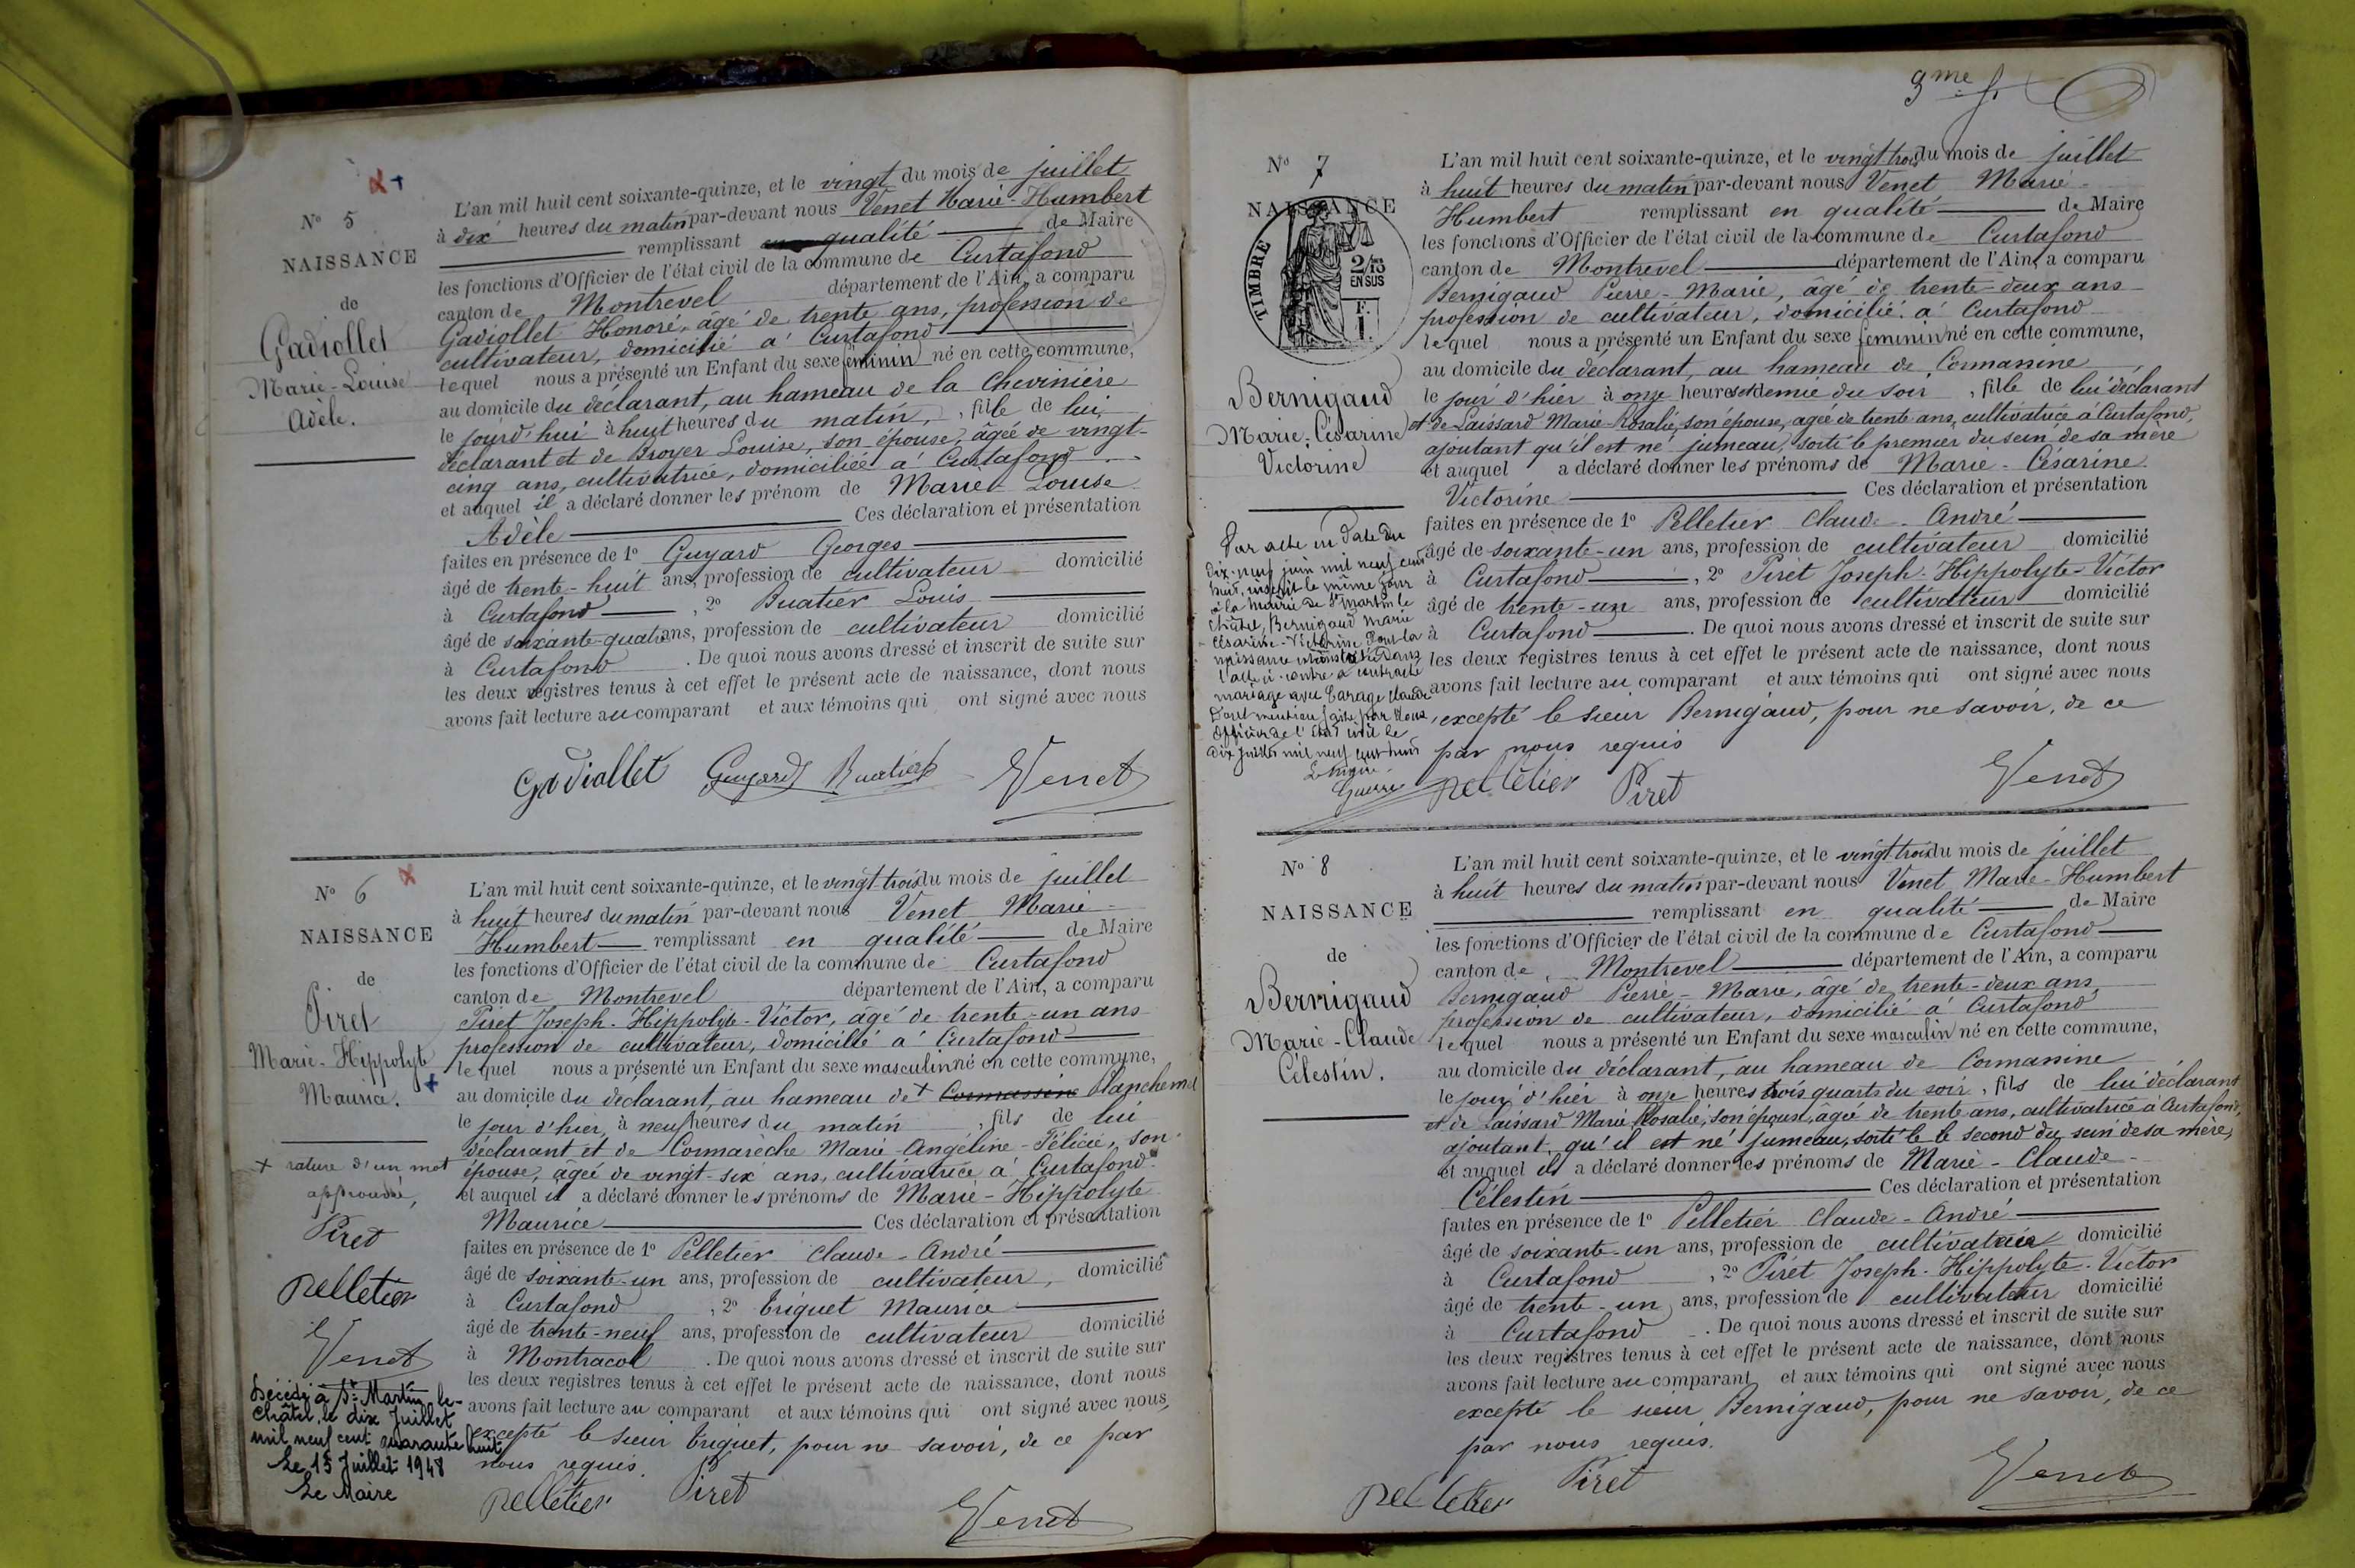 Nº 5
NAISSANCE
de
Gadiollet
Marie-Louise
Adèle.
L'an mil huit cent soixante-quinze, et le vingt du mois de juillet
à dix heures du matin par-devant nous Venet Marie-Humbert
remplissant qualité de Maire
les fonctions d'Officier de l'état civil de la commune de Curtafond
canton de Montrevel département de l'Ain, a comparu
Gadiollet Honoré, âgé de trente ans, profession de
cultivateur, domicilié à Curtafond
lequel nous a présenté un Enfant du sexe féminin né en cette commune,
au domicile du déclarant, au hameau de la Chevinière
le jourd'hui à huit heures du matin, fille de lui,
déclarant et de Broyer Louise, son épouse, âgée de vingt-
cinq ans, cultivatrice, domiciliée à Curtafond
et auquel il a déclaré donner les prénom de Marie-Louise
Adèle Ces déclaration et présentation
faites en présence de 1º Guyard Georges
âgé de trente-huit ans, profession de cultivateur domicilié
à Curtafond, 2º Buatier Louis
âgé de soixante-quatre ans, profession de cultivateur domicilié
à Curtafond. De quoi nous avons dressé et inscrit de suite sur
les deux registres tenus à cet effet le présent acte de naissance, dont nous
avons fait lecture au comparant et aux témoins qui ont signé avec nous
Gadiollet Guyard Buatier Venet
Nº 6
NAISSANCE
de
Piret
Marie-Hippolyte
Maurice.
+ rature d'un mot
approuvée,
Piret
Pelletier
Venet
Décédé à St Martin-le-
Châtel, le dix Juillet
mil neuf cent quarante huit
Le 15 Juillet 1948
Le Maire
L'an mil huit cent soixante-quinze, et le vingt-trois du mois de juillet
à huit heures du matin par-devant nous Venet Marie-
Humbert remplissant en qualité de Maire
les fonctions d'Officier de l'état civil de la commune de Curtafond
canton de Montrevel département de l'Ain, a comparu
Piret Joseph-Hippolyte-Victor, âgé de trente-un ans
profession de cultivateur, domicilié à Curtafond
lequel nous a présenté un Enfant du sexe masculin né en cette commune,
au domicile du déclarant, au hameau de + Cormassine Planchemel
le jour d'hier, à neuf heures du matin, fils de lui
déclarant et de Cormarèche Marie-Angéline-Félicie, son
épouse, âgée de vingt-six ans, cultivatrice à Curtafond
et auquel il a déclaré donner les prénoms de Marie-Hippolyte
Maurice Ces déclaration et présentation
faites en présence de 1º Pelletier Claude-André
âgé de soixante-un ans, profession de cultivateur, domicilié
à Curtafond, 2º Triquet Maurice
âgé de trente-neuf ans, profession de cultivateur domicilié
à Montracol. De quoi nous avons dressé et inscrit de suite sur
les deux registres tenus à cet effet le présent acte de naissance, dont nous
avons fait lecture au comparant et aux témoins qui ont signé avec nous,
excepté le sieur Triquet, pour ne savoir, de ce par
nous requis.
Pelletier Piret
Venet
9me f.
Nº 7
NAISSANCE
TIMBRE
2/10
EN SUS
F.
1.
Bernigaud
Marie-Césarine
Victorine
Par acte en date du
dix-neuf juin mil neuf cent
huit, inscrit le même jour
à la Mairie de St Martin le
Châtel, Bernigaud Marie
Césarine-Victorine dont la
naissance est constatée dans
l'acte ci-contre a contracté
mariage avec Carage Claude
Dont mention faite par Nous,
Officier de l'Etat civil le
dix juillet mil neuf cent huit
Le Maire
L'an mil huit cent soixante-quinze, et le vingt-trois du mois de juillet
à huit heures du matin par-devant nous Venet Marie-
Humbert remplissant en qualité de Maire
les fonctions d'Officier de l'état civil de la commune de Curtafond
canton de Montrevel département de l'Ain, a comparu
Bernigaud Pierre-Marie, âgé de trente-deux ans
profession de cultivateur, domicilié à Curtafond
lequel nous a présenté un Enfant du sexe féminin né en cette commune,
au domicile du déclarant, au hameau de Cormassine
le jour d'hier à onze heures et demie du soir, fille de lui déclarant
et de Laissard Marie-Rosalie, son épouse, âgée de trente ans, cultivatrice à Curtafond,
ajoutant qu'il est né jumeau, sorti le premier du sein de sa mère
et auquel a déclaré donner les prénoms de Marie-Césarine
Victorine Ces déclaration et présentation
faites en présence de 1º Pelletier Claude-André
âgé de soixante-un ans, profession de cultivateur domicilié
à Curtafond, 2º Piret Joseph-Hippolyte-Victor
âgé de trente-un ans, profession de cultivateur domicilié
à Curtafond. De quoi nous avons dressé et inscrit de suite sur
les deux registres tenus à cet effet le présent acte de naissance, dont nous
avons fait lecture au comparant et aux témoins qui ont signé avec nous
, excepté le sieur Bernigaud, pour ne savoir, de ce
par nous requis
Pelletier Piret Venet
Nº 8
NAISSANCE
de
Bernigaud
Marie-Claude
Célestin.
L'an mil huit cent soixante-quinze, et le vingt-trois du mois de juillet
à huit heures du matin par-devant nous Venet Marie-Humbert
remplissant en qualité de Maire
les fonctions d'Officier de l'état civil de la commune de Curtafond
canton de Montrevel département de l'Ain, a comparu
Bernigaud Pierre-Marie, âgé de trente-deux ans
profession de cultivateur, domicilié à Curtafond
lequel nous a présenté un Enfant du sexe masculin né en cette commune,
au domicile du déclarant, au hameau de Cormassine
le jour d'hier à onze heures trois quarts du soir, fils de lui déclarant
et de Laissard Marie Rosalie, son épouse, âgée de trente ans, cultivatrice à Curtafond,
ajoutant qu'il est né jumeau, sorti le le second du sein de sa mère,
et auquel il a déclaré donner les prénoms de Marie-Claude-
Célestin Ces déclaration et présentation
faites en présence de 1º Pelletier Claude-André
âgé de soixante-un ans, profession de cultivateur domicilié
à Curtafond, 2º Piret Joseph-Hippolyte-Victor
âgé de trente-un ans, profession de cultivateur domicilié
à Curtafond. De quoi nous avons dressé et inscrit de suite sur
les deux registres tenus à cet effet le présent acte de naissance, dont nous
avons fait lecture au comparant et aux témoins qui ont signé avec nous
excepté le sieur Bernigaud, pour ne savoir, de ce
par nous requis.
Pelletier Piret Venet